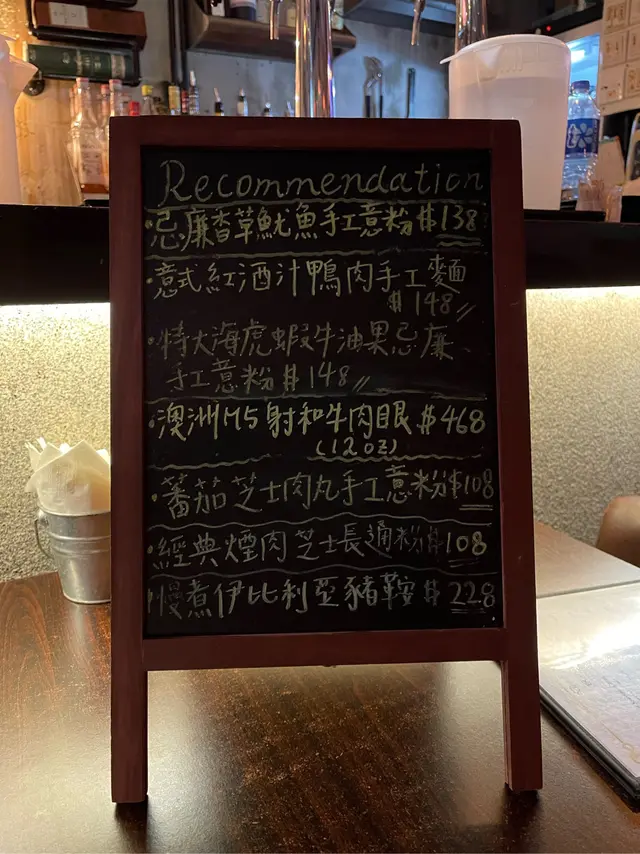 Recommendation
·忌廉香草魷魚手工意粉 $138
·意式紅酒汁鴨肉手工麵
$148
·特大海虎蝦牛油果忌廉
手工意粉 $148
·澳洲M5射和牛肉眼 $468
(12oz)
·蕃茄芝士肉丸手工意粉$108
·經典煙肉芝士長通粉$108
慢煮伊比利亞豬鞍 $228